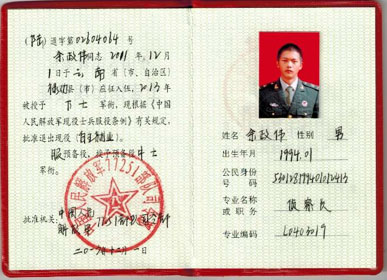 退字第02604064号
余政伟同志2011年12月
1日于云南省（市、自治区）
县（市）应征入伍，2013年
被授予下士军衔，现根据《中国
人民解放军现役士兵服役条例》有关规定，
批准退出现役（自主就业）
服预备役，授予预备役中士
军衔。
批准机关：中国人民
解放军77251部队司令部
二〇 年十二月一日
中国人民解放军77251部队司令部
姓名 余政伟 性别 男
出生年月 1994.01
公民身份
号码
专业名称
或职务 侦察兵
专业编码